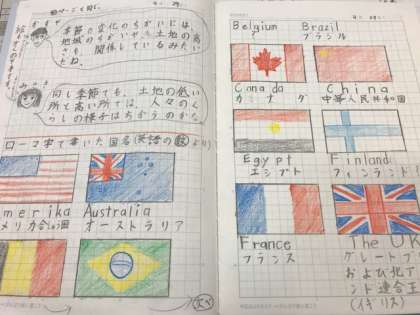 季節の変化のちがいには、
地域のちがいや土地の高
さも、関係しているみたい
だね。
同じ季節でも、土地の低い
所と高い所では、人々のく
らしの様子はちがうのかな。
ローマ字で書いた国名(英語の
より)
merika Australia
メリカ合しゅう国 オーストラリア
Belgium Brazil
ブラジル
Canada China
カナダ 中華人民共和国
Egypt Finland
エジプト フィンランド
France The UK
フランス グレートブ
および北ア
ンド連合王
(イギリス)